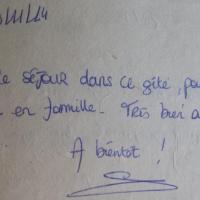 séjour dans ce gîte, pou
en famille. Très bien a
A bientôt !